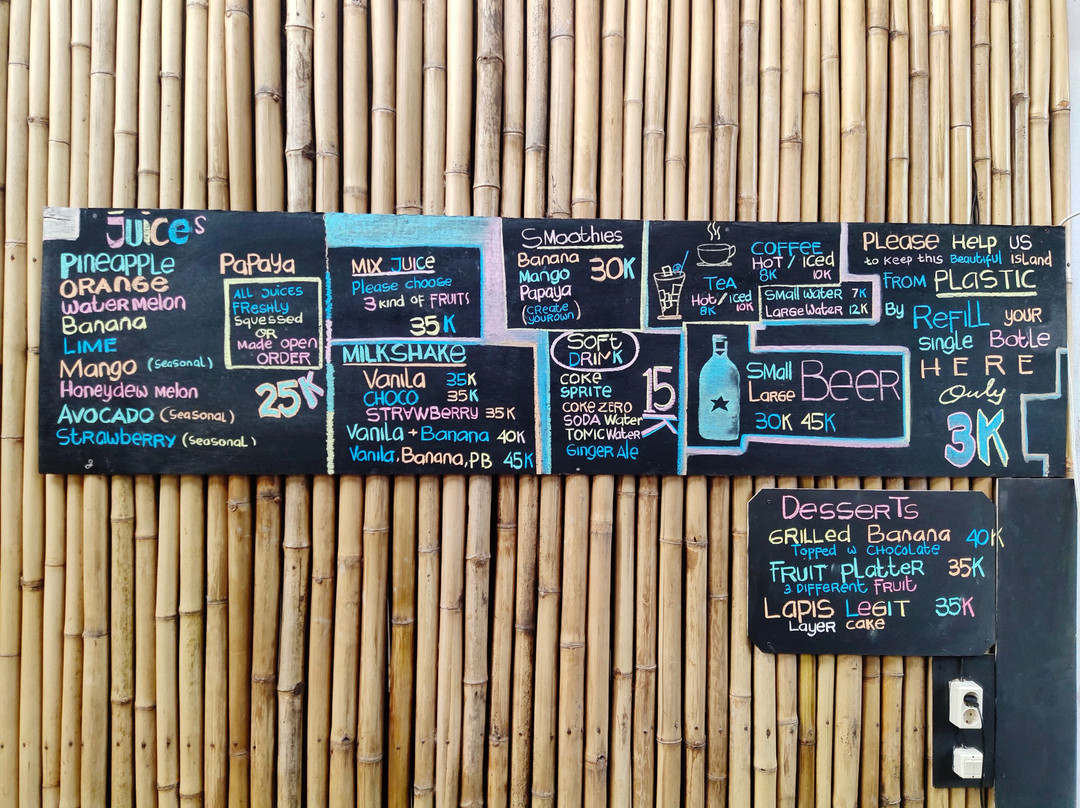 JUICES
PINEAPPLE
ORANGE
WATERMELON
Banana
LIME
Mango (seasonal)
Honeydew melon
AVOCADO (seasonal)
Strawberry (seasonal)
Papaya
ALL Juices
FResHly
Squessed
OR
Made open
ORDER
25K
MIX JUICE
Please choose
3 kind of FRUITS
35K
MILKSHAKE
Vanila 35K
CHOCO 35K
STRAWBERRY 35K
Vanila + Banana 40K
Vanila, Banana, PB 45K
SMoothies
Banana
Mango
Papaya
(CReate
your own)
30K
SoFt
DRINK
COKE
SPRITE
COKE ZERO
SODA Water
TOMIC Water
Ginger Ale
15K
TEA
Hot / iced
8K 10K
COFFEE
HOT / Iced
8K 10K
SMall water 7K
Large Water 12K
SMall
Large
BEER
30K 45K
PLease HeLP US
to Keep this Beautiful IsLand
FROM PLASTIC
By Refill your
Single Botle
HERE
Only
3K
DesserTs
GRILLed Banana 40K
Topped w CHocolate
FRUIT PLatter 35K
3 DIFFerent FRUIT
LAPIS LEGIT 35K
Layer cake